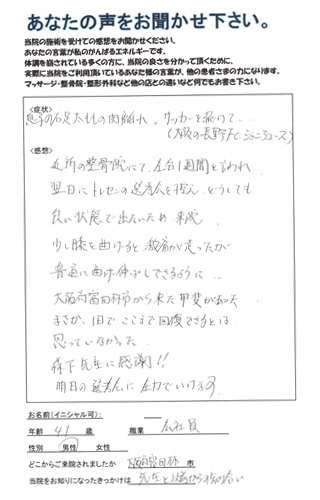 あなたの声をお聞かせ下さい。
当院の施術を受けての感想をお聞かせください。
あなたの言葉が私のがんばるエネルギーです。
体調を崩されている多くの方に、当院の良さを分かって頂くために、
実際に当院をご利用頂いているあなた様の言葉が、他の患者さまの力になります。
マッサージ・整骨院・整形外科など他の店との違いなど何でもお書き下さい。
<症状>
息子の右足太ももの肉離れ。サッカーを
<感想>
近所の整骨院にて、全治1週間と言われ
翌日にトレセンの選考会を控え、どうしても
良い状態で出たいため来院
少し膝を曲げると激痛が走ったが
普通に曲げ伸ばしできるように…
大阪府富田林市から来た甲斐があった
まさか、1日でここまで回復できるとは
思っていなかった
森下先生に感謝!!
明日の選考会に全力でいけます
お名前(イニシャル可):
年齢 41 歳 職業 会社員
性別 男性 女性
どこからご来院されましたか 大阪府富田林 市
当院をお知りになったきっかけは 先生と